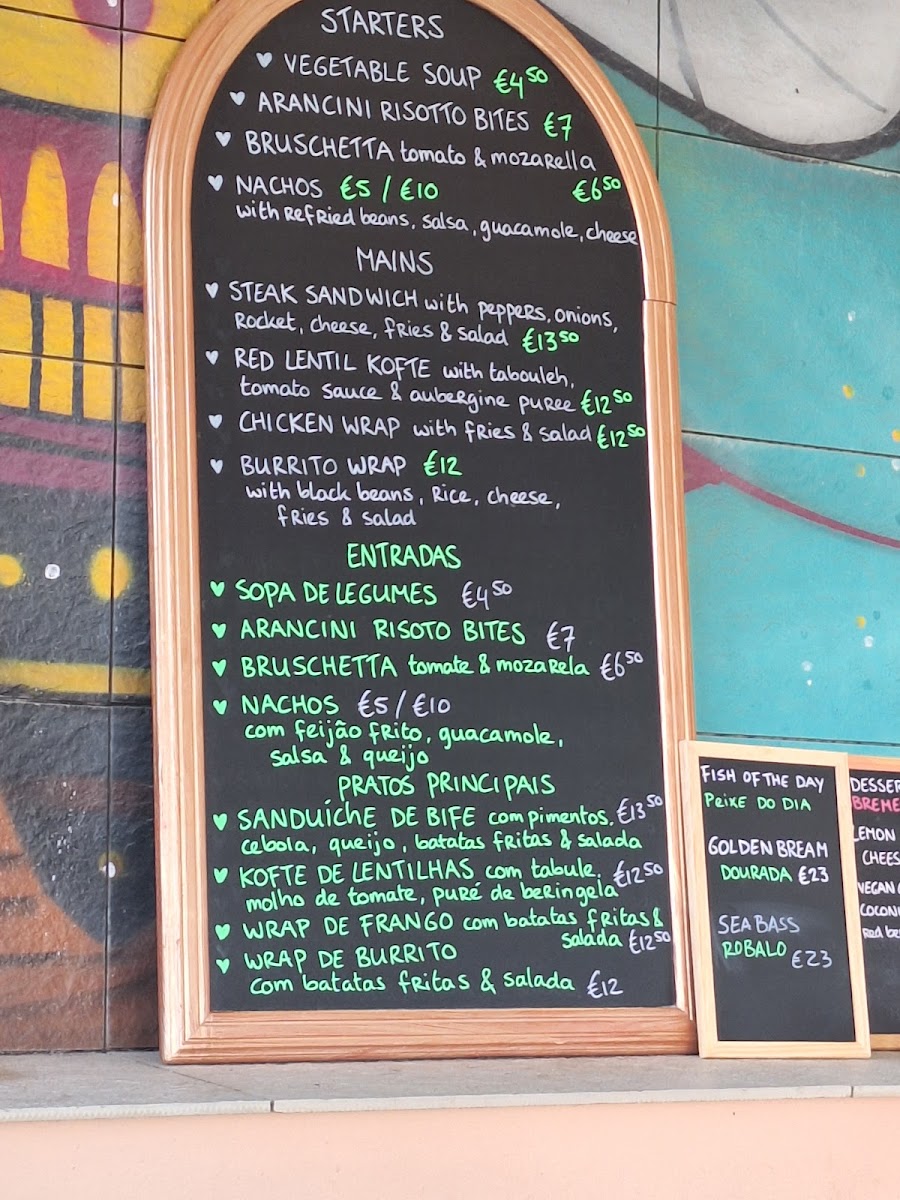 STARTERS
♥ VEGETABLE SOUP €4⁵⁰
♥ ARANCINI RISOTTO BITES €7
♥ BRUSCHETTA tomato & mozarella
€6⁵⁰
♥ NACHOS €5 / €10
with refried beans, salsa, guacamole, cheese
MAINS
♥ STEAK SANDWICH with peppers, onions,
Rocket, cheese, fries & salad €13⁵⁰
♥ RED LENTIL KOFTE with tabouleh,
tomato sauce & aubergine puree €12⁵⁰
♥ CHICKEN WRAP with fries & salad €12⁵⁰
♥ BURRITO WRAP €12
with black beans, Rice, cheese,
fries & salad
ENTRADAS
♥ SOPA DE LEGUMES €4⁵⁰
♥ ARANCINI RISOTO BITES €7
♥ BRUSCHETTA tomate & mozarela €6⁵⁰
♥ NACHOS €5 / €10
com feijão frito, guacamole,
salsa & queijo
PRATOS PRINCIPAIS
♥ SANDUÍCHE DE BIFE com pimentos, €13⁵⁰
cebola, queijo, batatas fritas & salada
♥ KOFTE DE LENTILHAS com tabule, €12⁵⁰
molho de tomate, puré de beringela
♥ WRAP DE FRANGO com batatas fritas &
salada €12⁵⁰
♥ WRAP DE BURRITO
com batatas fritas & salada €12
FISH OF THE DAY
PEIXE DO DIA
GOLDEN BREAM
DOURADA €23
SEA BASS
ROBALO €23
DESSER
BREME
LEMON
CHEES
VEGAN
COCON
Red be